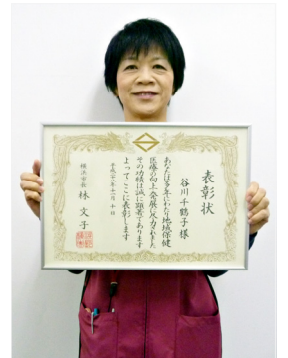 表彰状
谷川千鶴子様
あなたは多年にわたり地域保健
医療の向上発展に尽力されました
その功績は誠に顕著であります
よってここに表彰します
横浜市長 林文子